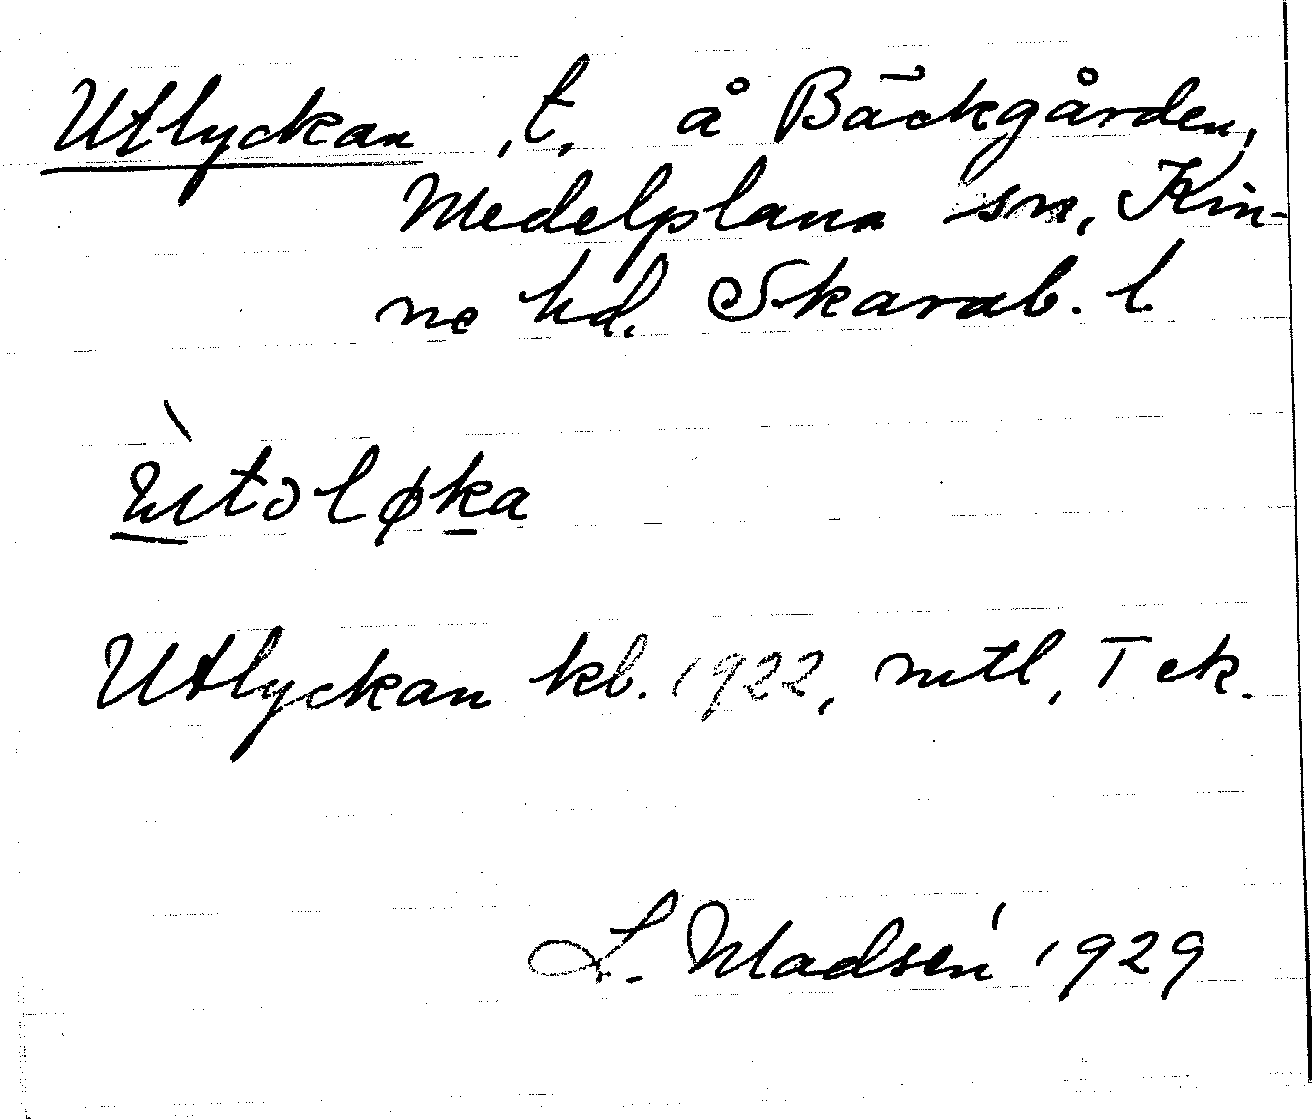 Utlyckan, t, å Bäckgården,
Medelplana sn, Kin-
ne hd. Skarab. l.
ùtəløka
Utlyckan kb. 1922, mtl, I ek.
L. Madsén 1929